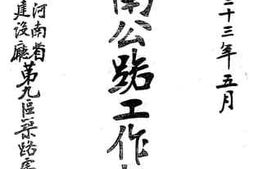 二十三年五月
南公路工作
河南省
建设厅
第九區築路處